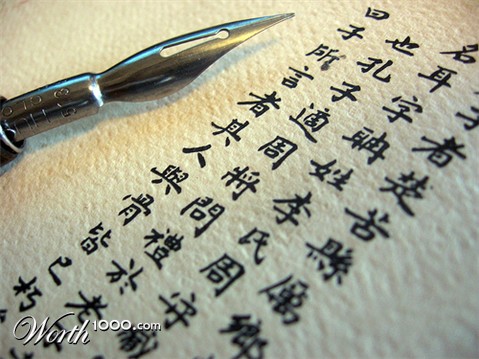 子者楚苦縣厲鄉
名耳字聃姓李氏周守藏
也孔子適周將問禮於老
曰子所言者其人與骨皆已朽
Worth1000.com